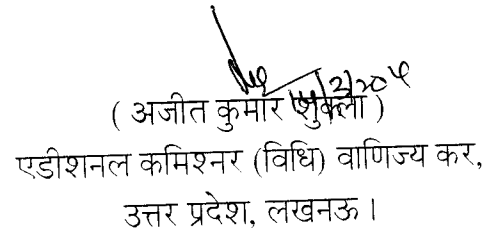 ( अजीत कुमार शुक्ला )
एडीशनल कमिश्नर (विधि) वाणिज्य कर,
उत्तर प्रदेश, लखनऊ ।